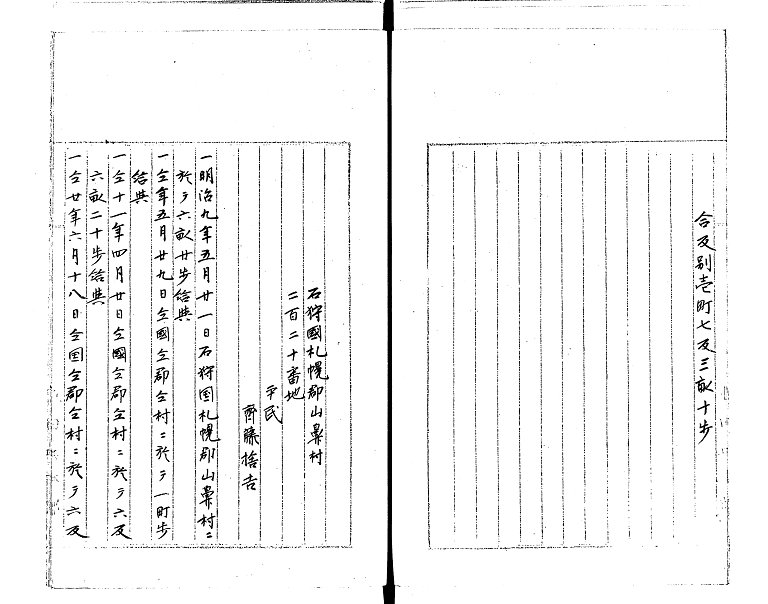 合反別壱町七反三畝十歩
石狩國札幌郡山鼻村
二百二十番地
平民
齊藤捨吉
一明治九年五月廿一日石狩国札幌郡山鼻村ニ
於テ六畝廿歩給與
一仝年五月廿九日仝國仝郡仝村ニ於テ一町歩
給與
一仝十一年四月廿日仝國仝郡仝村ニ於テ六反
六畝二十歩給與
一仝廿年六月十八日仝国仝郡仝村ニ於テ六反